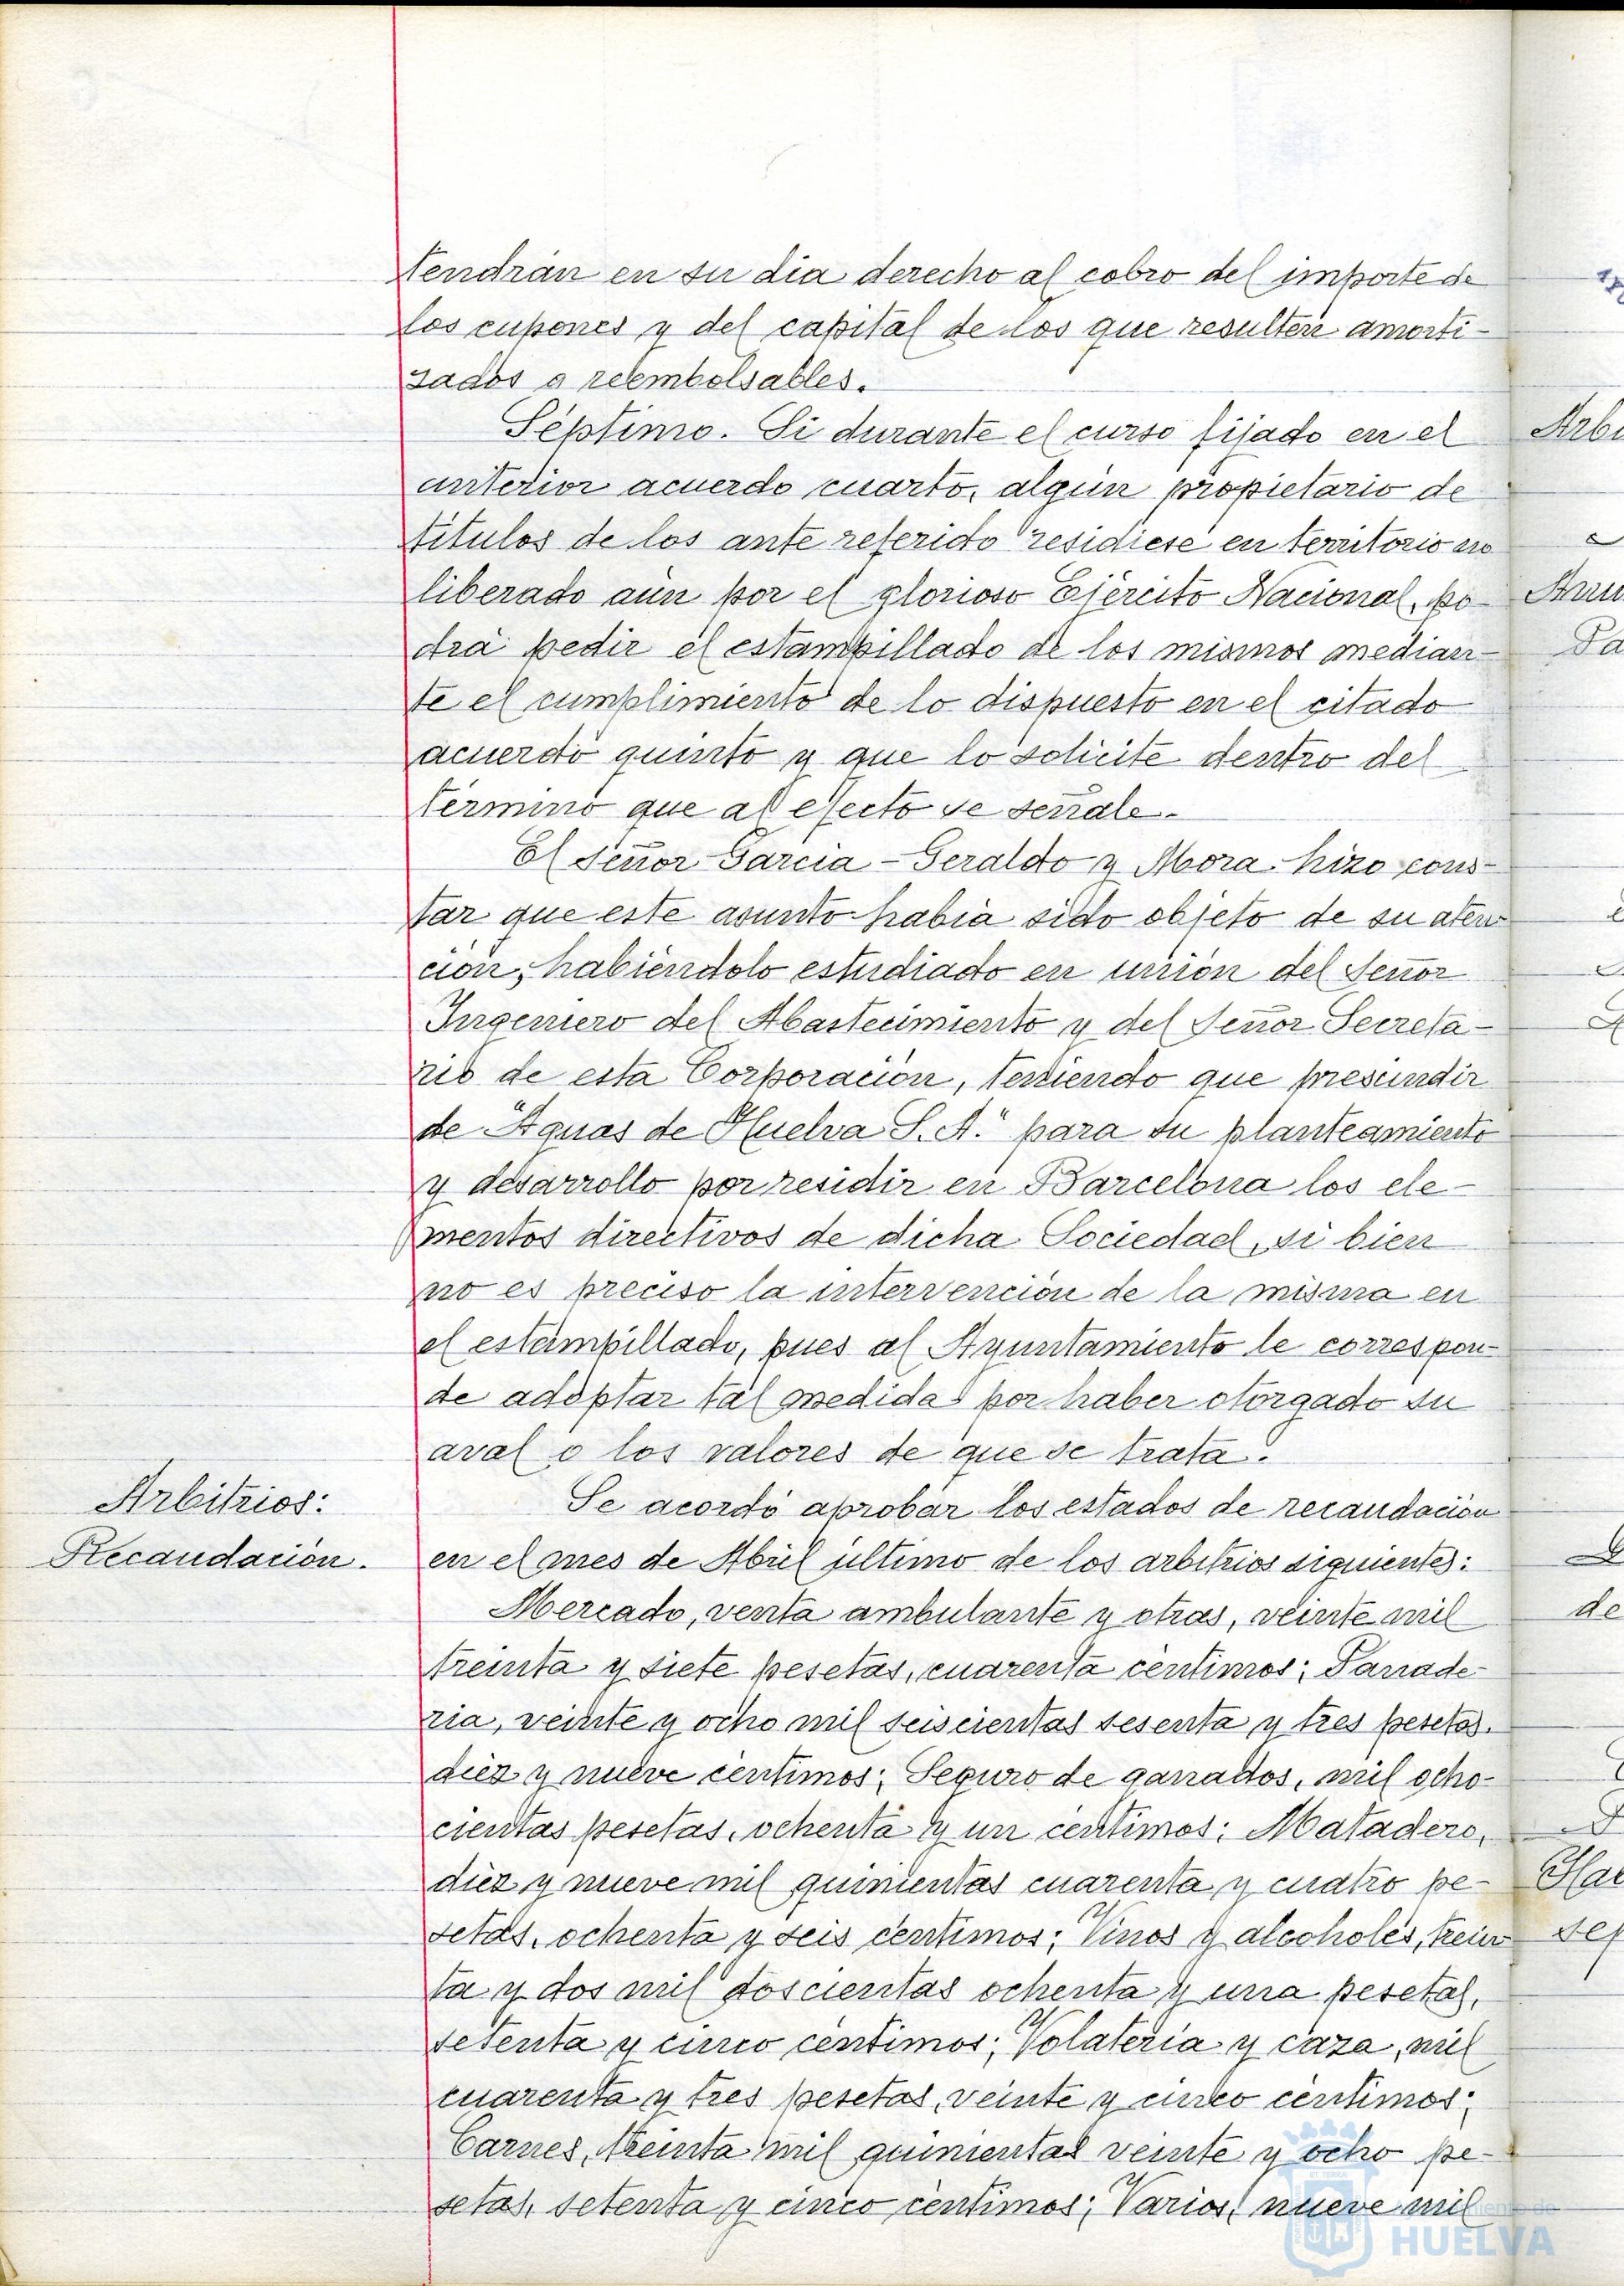 tendrán en su dia derecho al cobro del importe de
los cupones y del capital de los que resulten amorti-
zados o reembolsables.
Séptimo. Si durante el curso fijado en el
anterior acuerdo cuarto, algún propietario de
títulos de los ante referido residiese en territorio no
liberado aún por el glorioso Ejército Nacional, po-
drá pedir el estampillado de los mismos median-
te el cumplimiento de lo dispuesto en el citado
acuerdo quinto y que lo solicite dentro del
término que al efecto se señale.
El Señor Garcia-Geraldo y Mora hizo cons-
tar que este asunto habia sido objeto de su aten
ción, habiéndolo estudiado en unión del Señor
Ingeniero del Abastecimiento y del Señor Secreta-
rio de esta Corporación, teniendo que prescindir
de "Aguas de Huelva S. A." para su planteamiento
y desarrollo por residir en Barcelona los ele-
mentos directivos de dicha Sociedad, si bien
no es preciso la intervención de la misma en
el estampillado, pues al Ayuntamiento le correspon-
de adoptar tal medida por haber otorgado su
aval o los valores de que se trata.
Arbitrios:
Recaudación.
Se acordó aprobar los estados de recaudación
en el mes de Abril último de los arbitrios siguientes:
Mercado, venta ambulante y otras, veinte mil
treinta y siete pesetas, cuarenta centimos; Panade-
ria, veinte y ocho mil seiscientas sesenta y tres pesetas.
diez y nueve centimos; Seguro de ganados, mil ocho-
cientas pesetas, ochenta y un centimos; Matadero,
diez y nueve mil quinientas cuarenta y cuatro pe-
setas, ochenta y seis centimos; Vinos y alcoholes, trein
ta y dos mil doscientas ochenta y una pesetas,
setenta y cinco centimos; Volateria y caza, mil
cuarenta y tres pesetas, veinte y cinco centimos;
Carnes, treinta mil quinientas veinte y ocho pe-
setas, setenta y cinco centimos; Varios, nueve mil
HUELVA